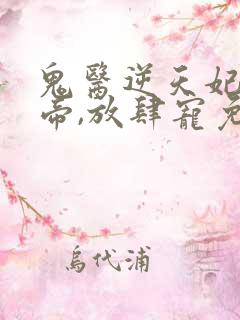 鬼醫逆天妃
帝,放肆寵
烏代浦